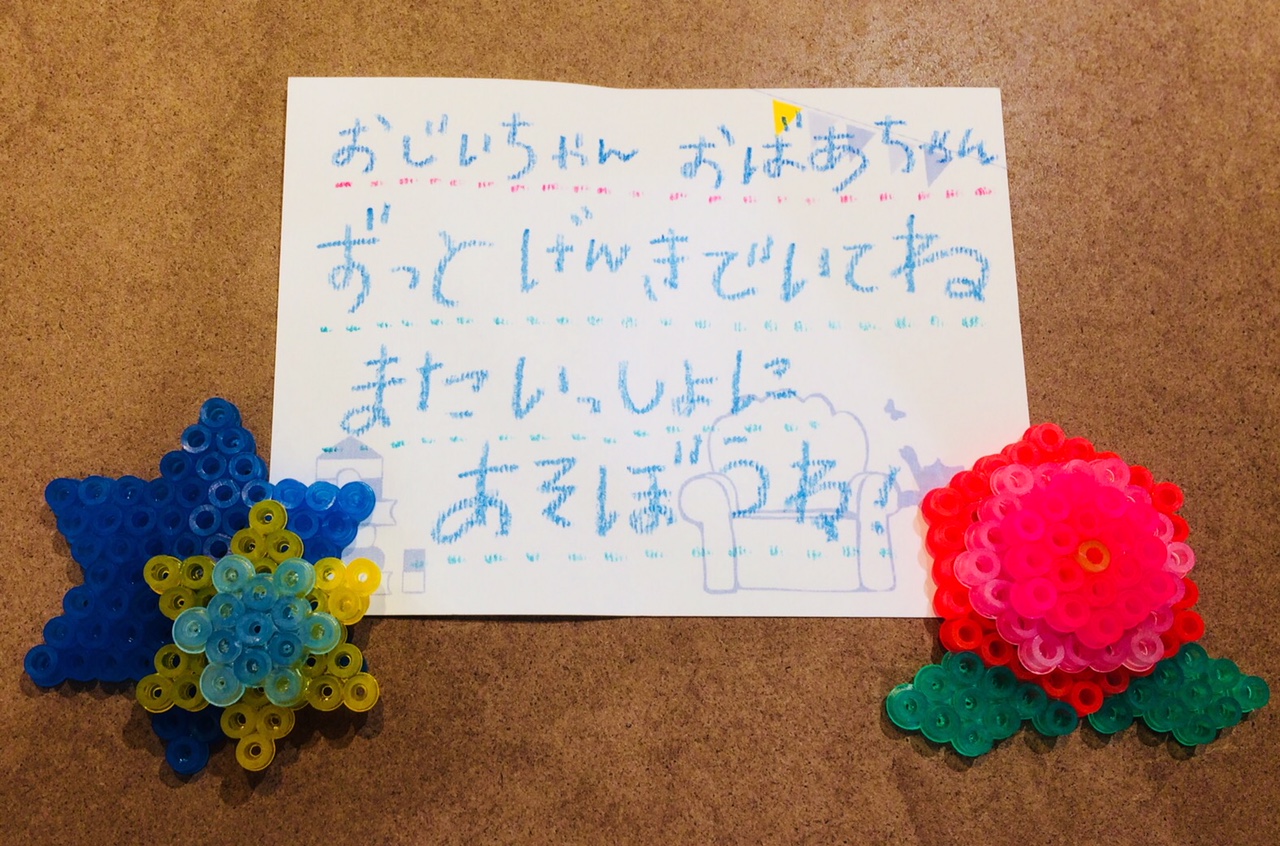 おじいちゃん おばあちゃん
ずっとげんきでいてね
またいっしょに
あそぼうね!